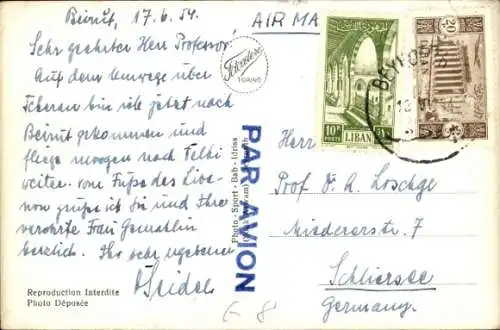 Beirut, 17.6.54.
AIR MA
Sehr geehrter Herr Professor,
Auf dem umwege über
Teheran bin ich jetzt nach
Beirut gekommen und
fliege morgen nach
weiter. vom Fusse des Liba-
non grüsse ich Sie und Ihre
verehrte Frau Gemahlin
herzlich. Ihr sehr ergebener
Seidel
Reproduction Interdite
Photo Déposée
TORINO
Photo - Sport - Bab - Idriss
PAR AVION
10P
LIBAN
20P
BEYROUTH
Herrn
Prof. Dr. A. Loschge
Miedererstr. 7
Schliersee
Germany.